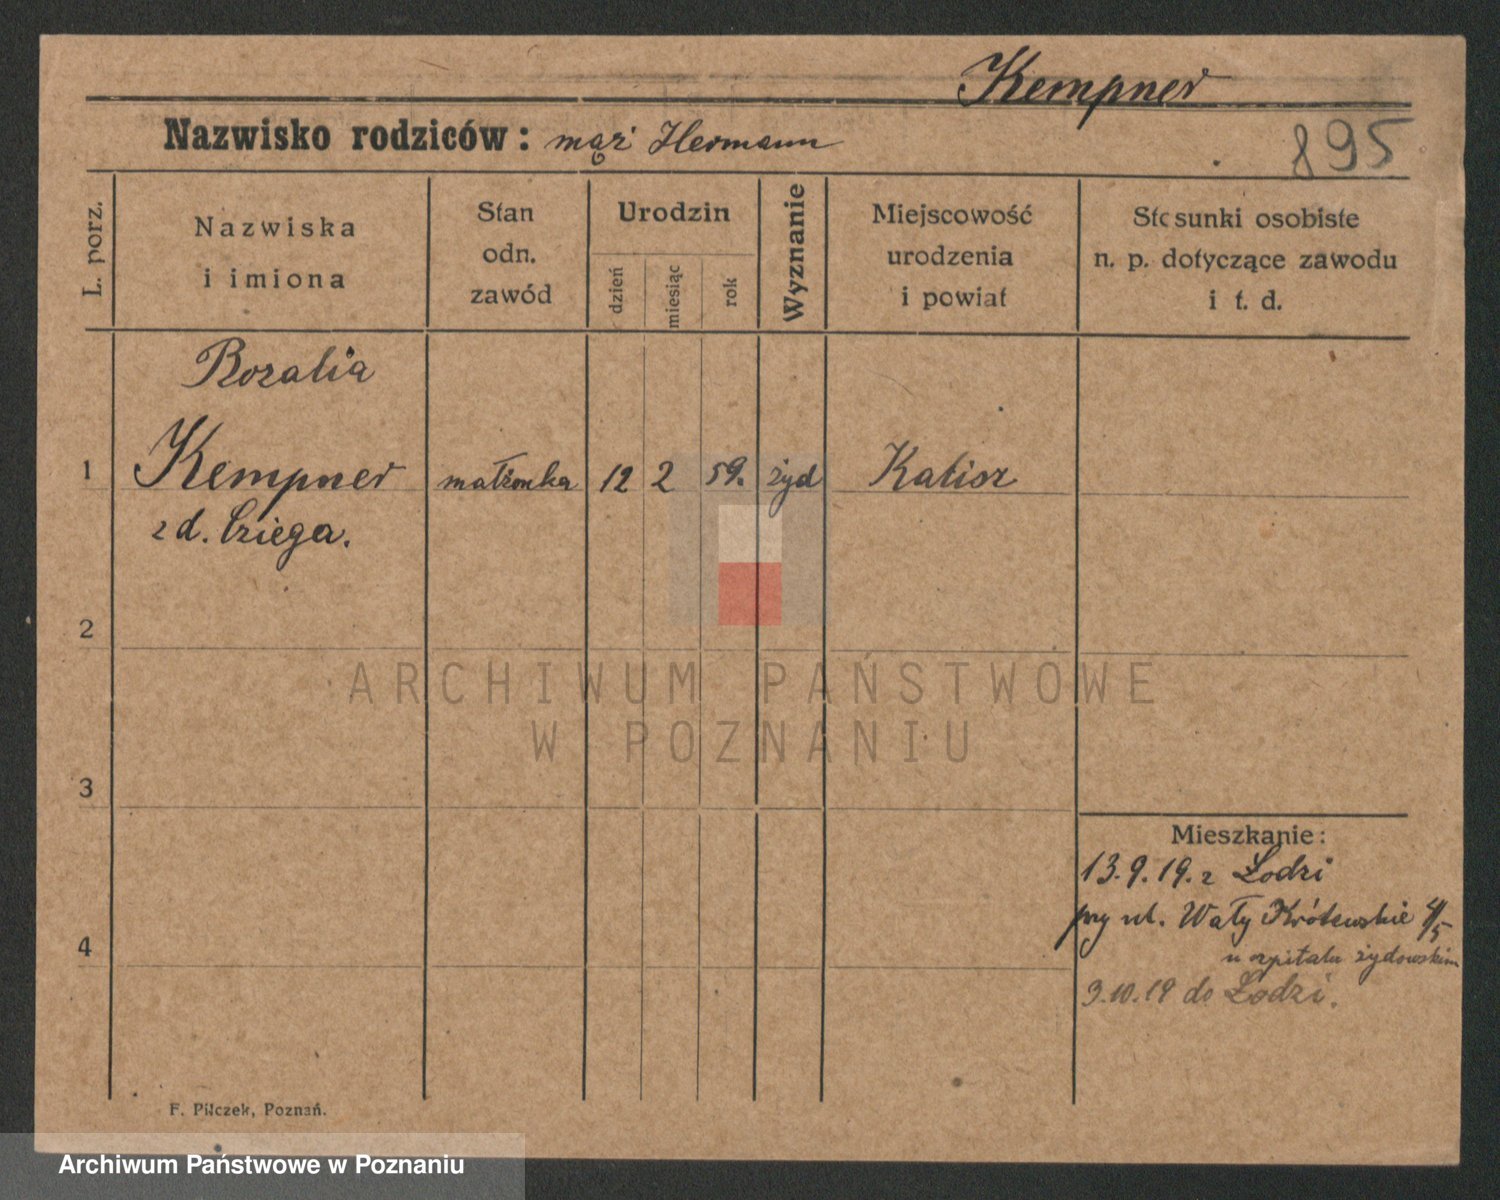 Kempner
Nazwisko rodziców: mąż Hermann
895
L. porz.
Nazwiska
i imiona
Stan
odn.
zawód
Urodzin
dzień
miesiąc
rok
Wyznanie
Miejscowość
urodzenia
i powiat
Stosunki osobiste
n. p. dotyczące zawodu
i t. d.
Rozalia
1 Kempner małżonka 12 2 59. żyd Kalisz
z d. Cziega.
2
ARCHIWUM PAŃSTWOWE
W POZNANIU
3
Mieszkanie:
13.9.19. z Łodzi
przy ul. Wały Królewskie 4/5
4
w szpitalu żydowskim
3.10.19 do Łodzi.
F. Pilczek, Poznań.
Archiwum Państwowe w Poznaniu